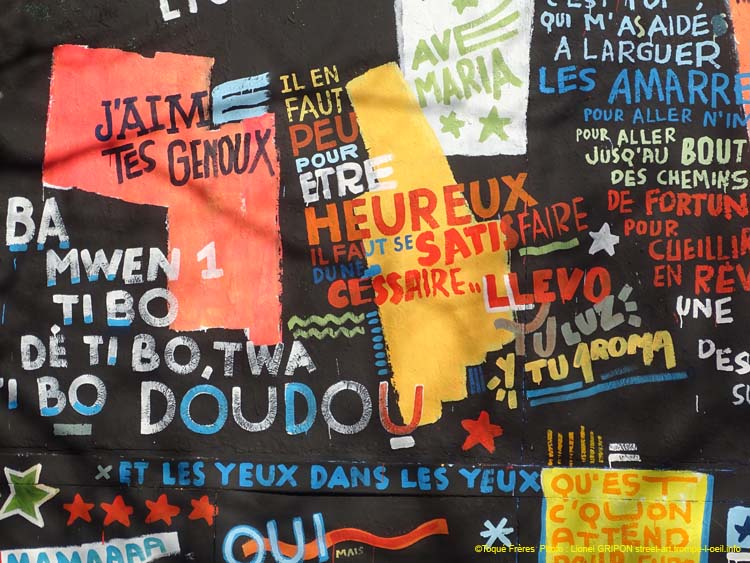 AVE
MARIA
QUI M'ASAIDES
A LARGUER
LES AMARRE
POUR ALLER N'IN
POUR ALLER
JUSQU'AU BOUT
DES CHEMINS
DE FORTUN
POUR
CUEILLI
EN RÊV
UNE
DES
J'AIME
TES GENOUX
IL EN
FAUT
PEU
POUR
ETRE
HEUREUX
IL FAUT SE SATISFAIRE
DU NE
CESSAIRE..
LLEVO
TU LUZ
Y
TU AROMA
BA
MWEN 1
TI BO
DÉ TI BO, TWA
TI BO DOUDOU
ET LES YEUX DANS LES YEUX
MAMAAAA
OUI
MAIS
QU'EST
C'QU'ON
ATTEND
©Toque Frères Photo : Lionel GRIPON street-art.trompe-l-oeil.info